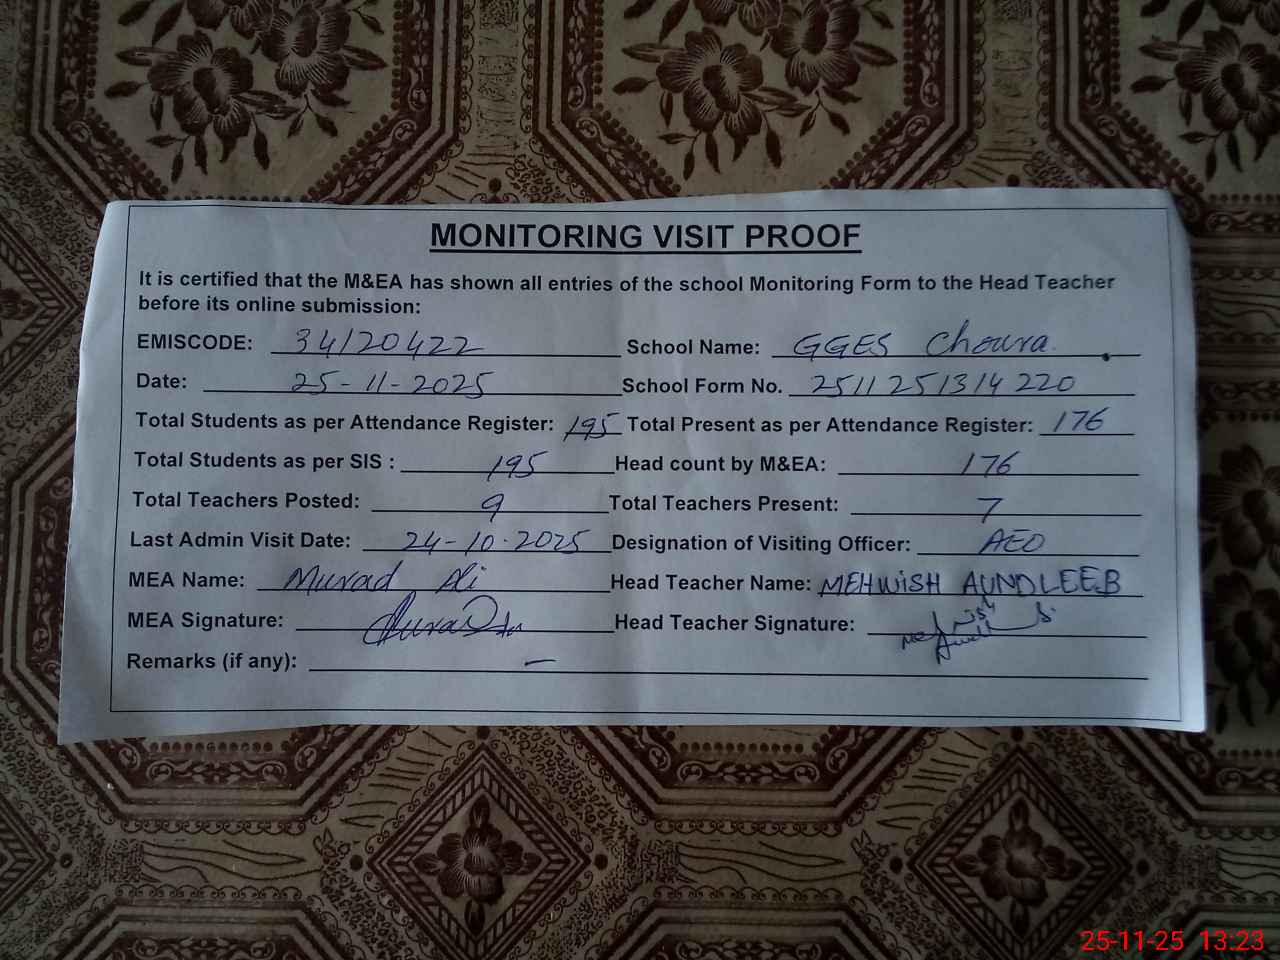 MONITORING VISIT PROOF
It is certified that the M&EA has shown all entries of the school Monitoring Form to the Head Teacher
before its online submission:
EMISCODE: 34120422 School Name: GGES Choura
Date: 25-11-2025 School Form No. 2511251314220
Total Students as per Attendance Register: 195 Total Present as per Attendance Register: 176
Total Students as per SIS : 195 Head count by M&EA: 176
Total Teachers Posted: 9 Total Teachers Present: 7
Last Admin Visit Date: 24-10-2025 Designation of Visiting Officer: AEO
MEA Name: Murad Ali Head Teacher Name: MEHWISH AUNDLEEB
MEA Signature: Head Teacher Signature:
Remarks (if any): —
25-11-25 13:23